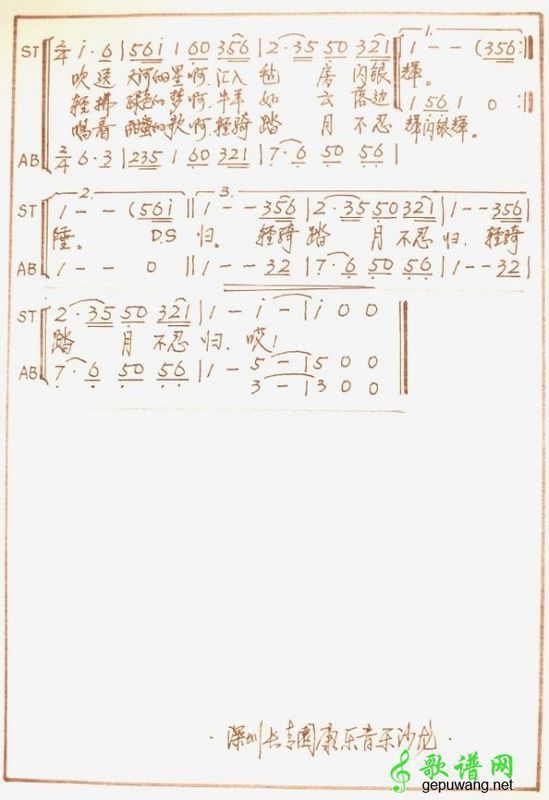 1.
ST 2/4 i·6 | 56i 1 60 356 | 2·35 50 321 | 1 - - (356 :||
吹送 天河的星啊,汇入 毡 房 闪银 辉。
轻拂 绿色的梦啊,牛羊 如 云 落边 1 561 1 0 :||
唱着 甜蜜的歌啊,轻骑 踏 月 不忍 辉闪银辉。
AB 2/4 6·3 | 235 1 60 321 | 7·6 50 56 |
2. 3.
ST 1 - - (56i || 1 - - 356 | 2·35 50 321 | 1 - - 356 |
陲。 D.S 归。 轻骑 踏 月 不忍 归, 轻骑
AB 1 - - 0 || 1 - - 32 | 7·6 50 56 | 1 - - 32 |
ST 2·35 50 321 | 1 - i - | i 0 0
踏 月 不忍 归, 哎!
AB 7·6 50 56 | 1 - 5 - | 5 0 0
3 - | 3 0 0
·深圳长青园康乐音乐沙龙·
歌谱网
gepuwang.net